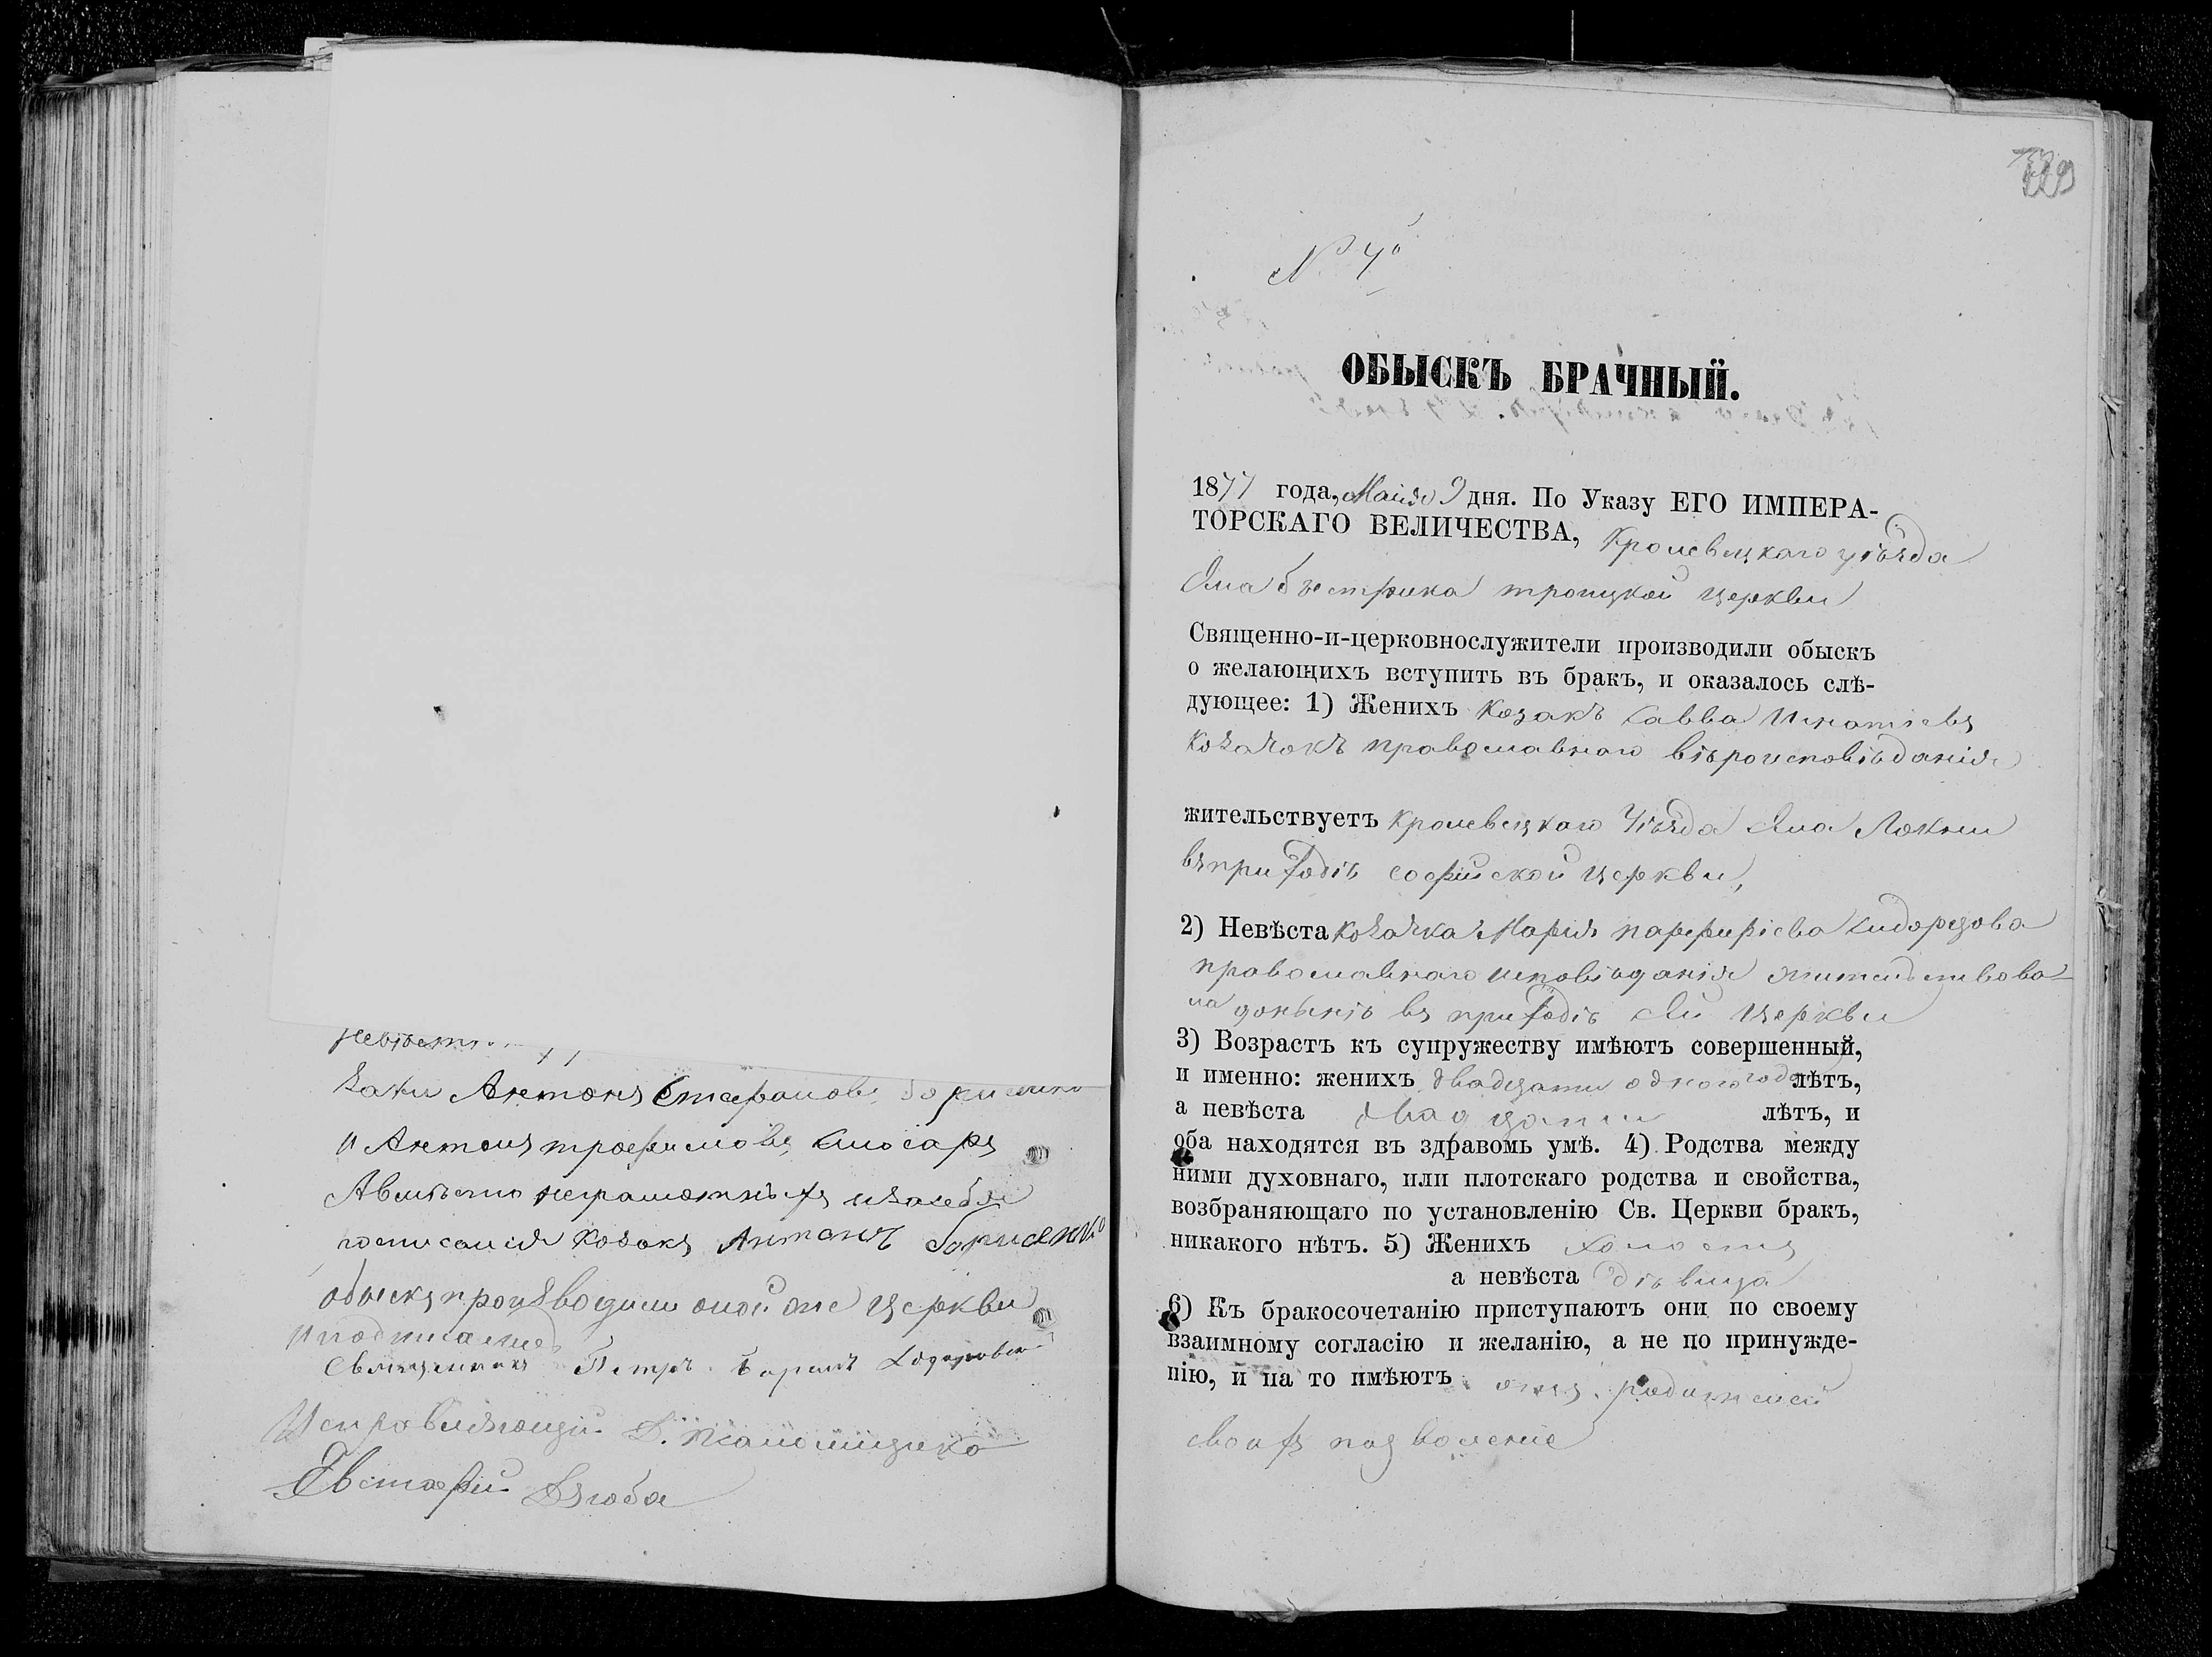 невѣст
Заки Антонъ Стефановъ Борисенко
и Антонъ трофимовъ Слюсарь
Авмѣсто неграмотныхъ изасебя
росписалія Козакъ Антонъ Борисенко
обыскъ производили оной же Церкви
и подписалися
Священникъ Петръ
Исправляющій Д.
Евстафій Дзюба
№ 4й
ОБЫСКЪ БРАЧНЫЙ.
1877 года, Маія 9 дня. По Указу ЕГО ИМПЕРА-
ТОРСКАГО ВЕЛИЧЕСТВА, Кролевецкаго уѣзда
Села бистрика троицкой церкви
Священно-и-церковнослужители производили обыскъ
о желающихъ вступить въ бракъ, и оказалось слѣ-
дующее: 1) Женихъ Козакъ Савва Игнатіевъ
Козачокъ православнаго вѣроисповѣданія
жительствуетъ Кролевецкаго Уѣзда Села Локни
въ приходѣ софійской церкви,
2) Невѣста Козачка Марія парфиріева Сидорцова
православнаго исповѣданія жительствова-
ла донынѣ въ приходѣ сей Церкви
3) Возрастъ къ супружеству имѣютъ совершенный,
и именно: женихъ двадцати одного года лѣтъ,
а невѣста двадцати лѣтъ, и
оба находятся въ здравомъ умѣ. 4) Родства между
ними духовнаго, или плотскаго родства и свойства,
возбраняющаго по установленію Св. Церкви бракъ,
никакого нѣтъ. 5) Женихъ холостъ
а невѣста дѣвица
6) Къ бракосочетанію приступаютъ они по своему
взаимному согласію и желанію, а не по принужде-
нію, и на то имѣютъ отъ родителей
своихъ позволеніе